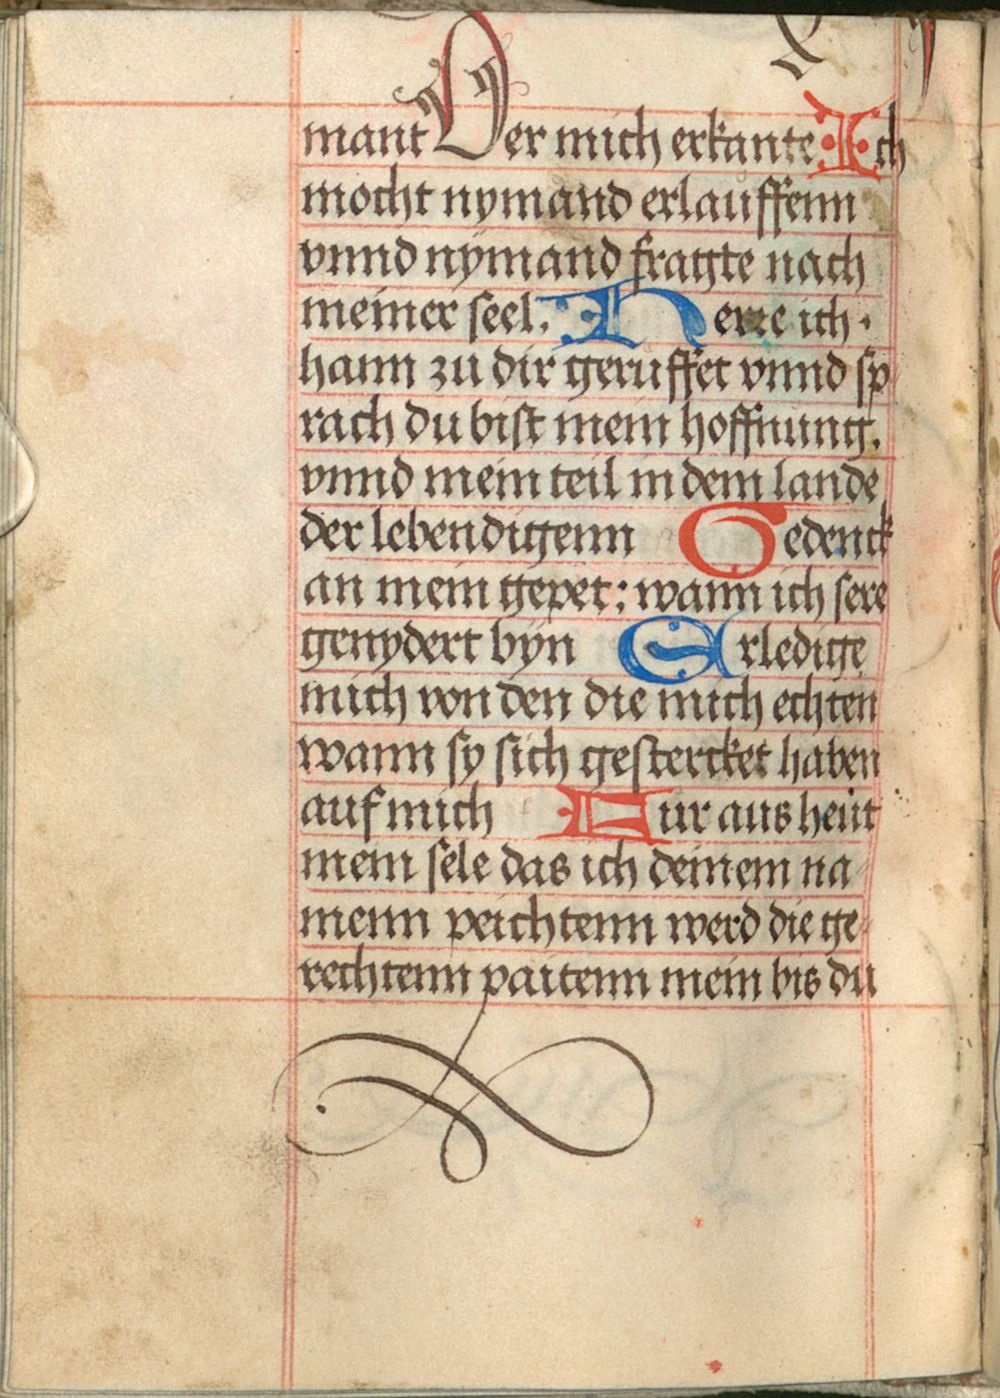 mant Der mich erkante Ich
mocht nymand erlauffenn
vnnd nymand fragte nach
meiner seel. Herre ich.
hann zu dir geruffet vnnd sp
rach du bist mein hoffnung.
vnnd mein teil in dem lande
der lebendigenn Gedenck
an mein gepet: wann ich sere
genydert byn Erledige
mich von den die mich echten
wann sy sich gestercket haben
auf mich Fur aus heut
mein sele das ich deinem na
menn peichtenn werd die ge
rechtenn paitenn mein bis du